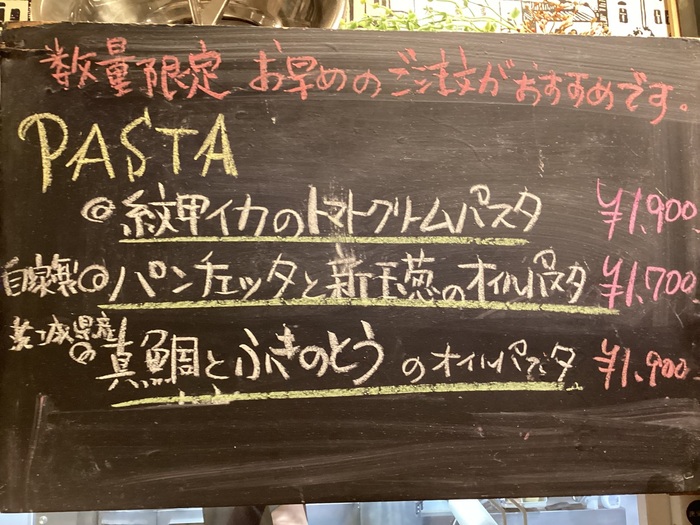 数量限定 お早めのご注文がおすすめです。
PASTA
◎紋甲イカのトマトクリームパスタ ¥1,900
自家製◎パンチェッタと新玉葱のオイルパスタ ¥1,700
茨城県産◎真鯛とふきのとうのオイルパスタ ¥1,900